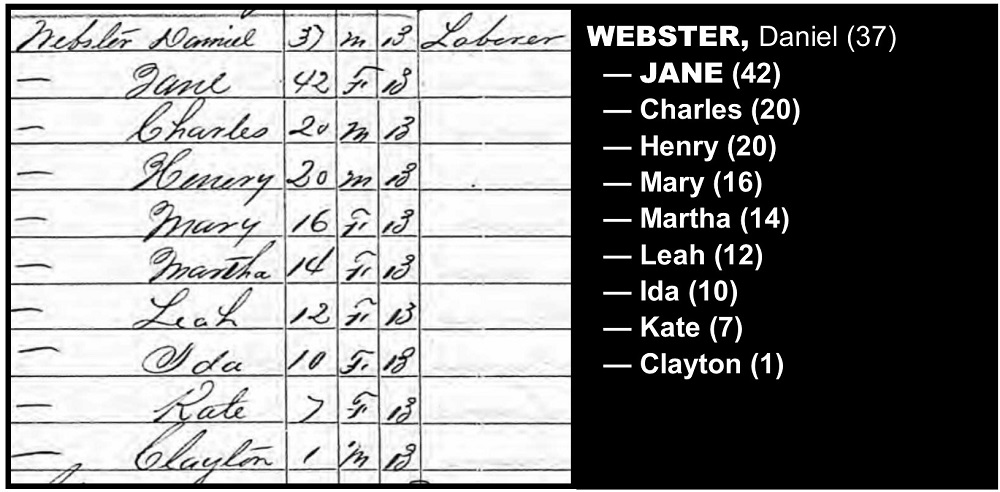 Webster Daniel 37 m B Laborer
— Jane 42 F B
— Charles 20 m B
— Henery 20 m B
— Mary 16 F B
— Martha 14 F B
— Leah 12 F B
— Ida 10 F B
— Kate 7 F B
— Clayton 1 m B
WEBSTER, Daniel (37)
— JANE (42)
— Charles (20)
— Henry (20)
— Mary (16)
— Martha (14)
— Leah (12)
— Ida (10)
— Kate (7)
— Clayton (1)